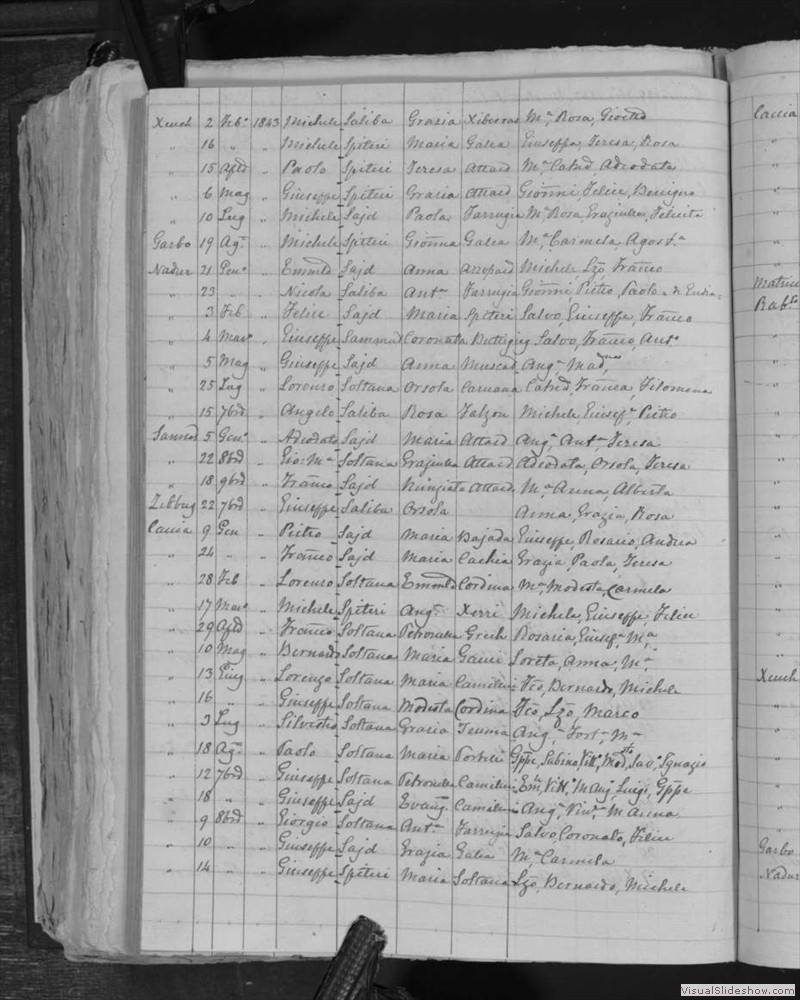 Xeuch 2 Feb.º 1843 Michele Saliba Grazia Xiberras M.ª Rosa, Gioред
„ 16 „ „ Michele Spiteri Maria Galea Giuseppa, Teresa, Rosa
„ 15 Aple „ Paolo Spiteri Teresa Attard M.ª Adeodata
„ 6 Mag „ Giuseppe Spiteri Grazia Attard Gionni, Felice, Benigno
„ 10 Lug „ Michele Sajd Paola Farrugia M.ª Rosa, Graziulla, Felicita
Garbo 19 Ag.º „ Michele Spiteri Gionna Galea M.ª Carmela, Agost.ª
Nadur 21 Gen.º „ Emmle Sajd Anna Azzopard Michele, Lzo, Franco
„ 23 „ „ Nicola Saliba Ant.ª Farrugia Gionni, Pietro, Paolo
„ 3 Feb „ Felice Sajd Maria Spiteri Salvo, Giuseppe, Franco
„ 4 Mar.º „ Giuseppe Sammut Coronata Buttigieg Salvo, Franco, Ant.º
„ 5 Mag „ Giuseppe Sajd Anna Muscat Ang.ª Mad
„ 25 Lug „ Lorenzo Soltana Orsola Caruana Franca, Filomena
„ 15 7bre „ Angelo Saliba Rosa Falzon Michele, Giusef.ª Pietro
Sannat 5 Gen.º „ Adeodato Sajd Maria Attard Ang.ª Ant.ª Teresa
„ 22 8bre „ Gio: M.ª Soltana Graziulla Attard Adeodata, Orsola, Teresa
„ 18 9bre „ Franco Sajd Nunziata Attard M.ª Anna, Alberta
Zebbug 22 7bre „ Giuseppe Saliba Orsola Anna, Grazia, Rosa
Caccia 9 Gen „ Pietro Sajd Maria Bajada Giuseppe, Rosario, Andrea
„ 24 „ „ Franco Sajd Maria Cachia Grazia, Paola, Teresa
„ 28 Feb „ Lorenzo Soltana Emmla Cordina M.ª Modesta, Carmela
„ 17 Mar.º „ Michele Spiteri Ang.ª Xerri Michele, Giuseppe, Felice
„ 29 Aple „ Franco Soltana Petronilla Grech Rosaria, Giusef.ª M.ª
„ 10 Mag „ Bernardo Soltana Maria Gauci Loreta, Anna, M.ª
„ 13 Giug „ Lorenzo Soltana Maria Camilleri Fco, Bernardo, Michele
„ 16 „ „ Giuseppe Soltana Modesta Cordina Fco, Lzo, Marco
„ 3 Lug „ Silvestro Soltana Grazia Teuma Ang.ª Fort.ª M.ª
„ 18 Ag.º „ Paolo Soltana Maria Portelli Gppe, Sabino, Vitt.º, Modsto, Sav.º, Ignazio
„ 12 7bre „ Giuseppe Soltana Petronilla Camilleri Em., Vitt.º M Ang.º Luigi, Gppe
„ 18 „ „ Giuseppe Sajd Evang. Camilleri Ang.ª Vin.ª M Anna
„ 9 8bre „ Giorgio Soltana Ant.ª Farrugia Salvo, Coronato, Felice
„ 10 „ „ Giuseppe Sajd Grazia Galea M.ª Carmela
„ 14 „ „ Giuseppe Spiteri Maria Soltana Lzo, Bernardo, Michele
Caccia
Matrice
Rabto
Xeuch
Garbo
Nadur
VisualSlideshow.com